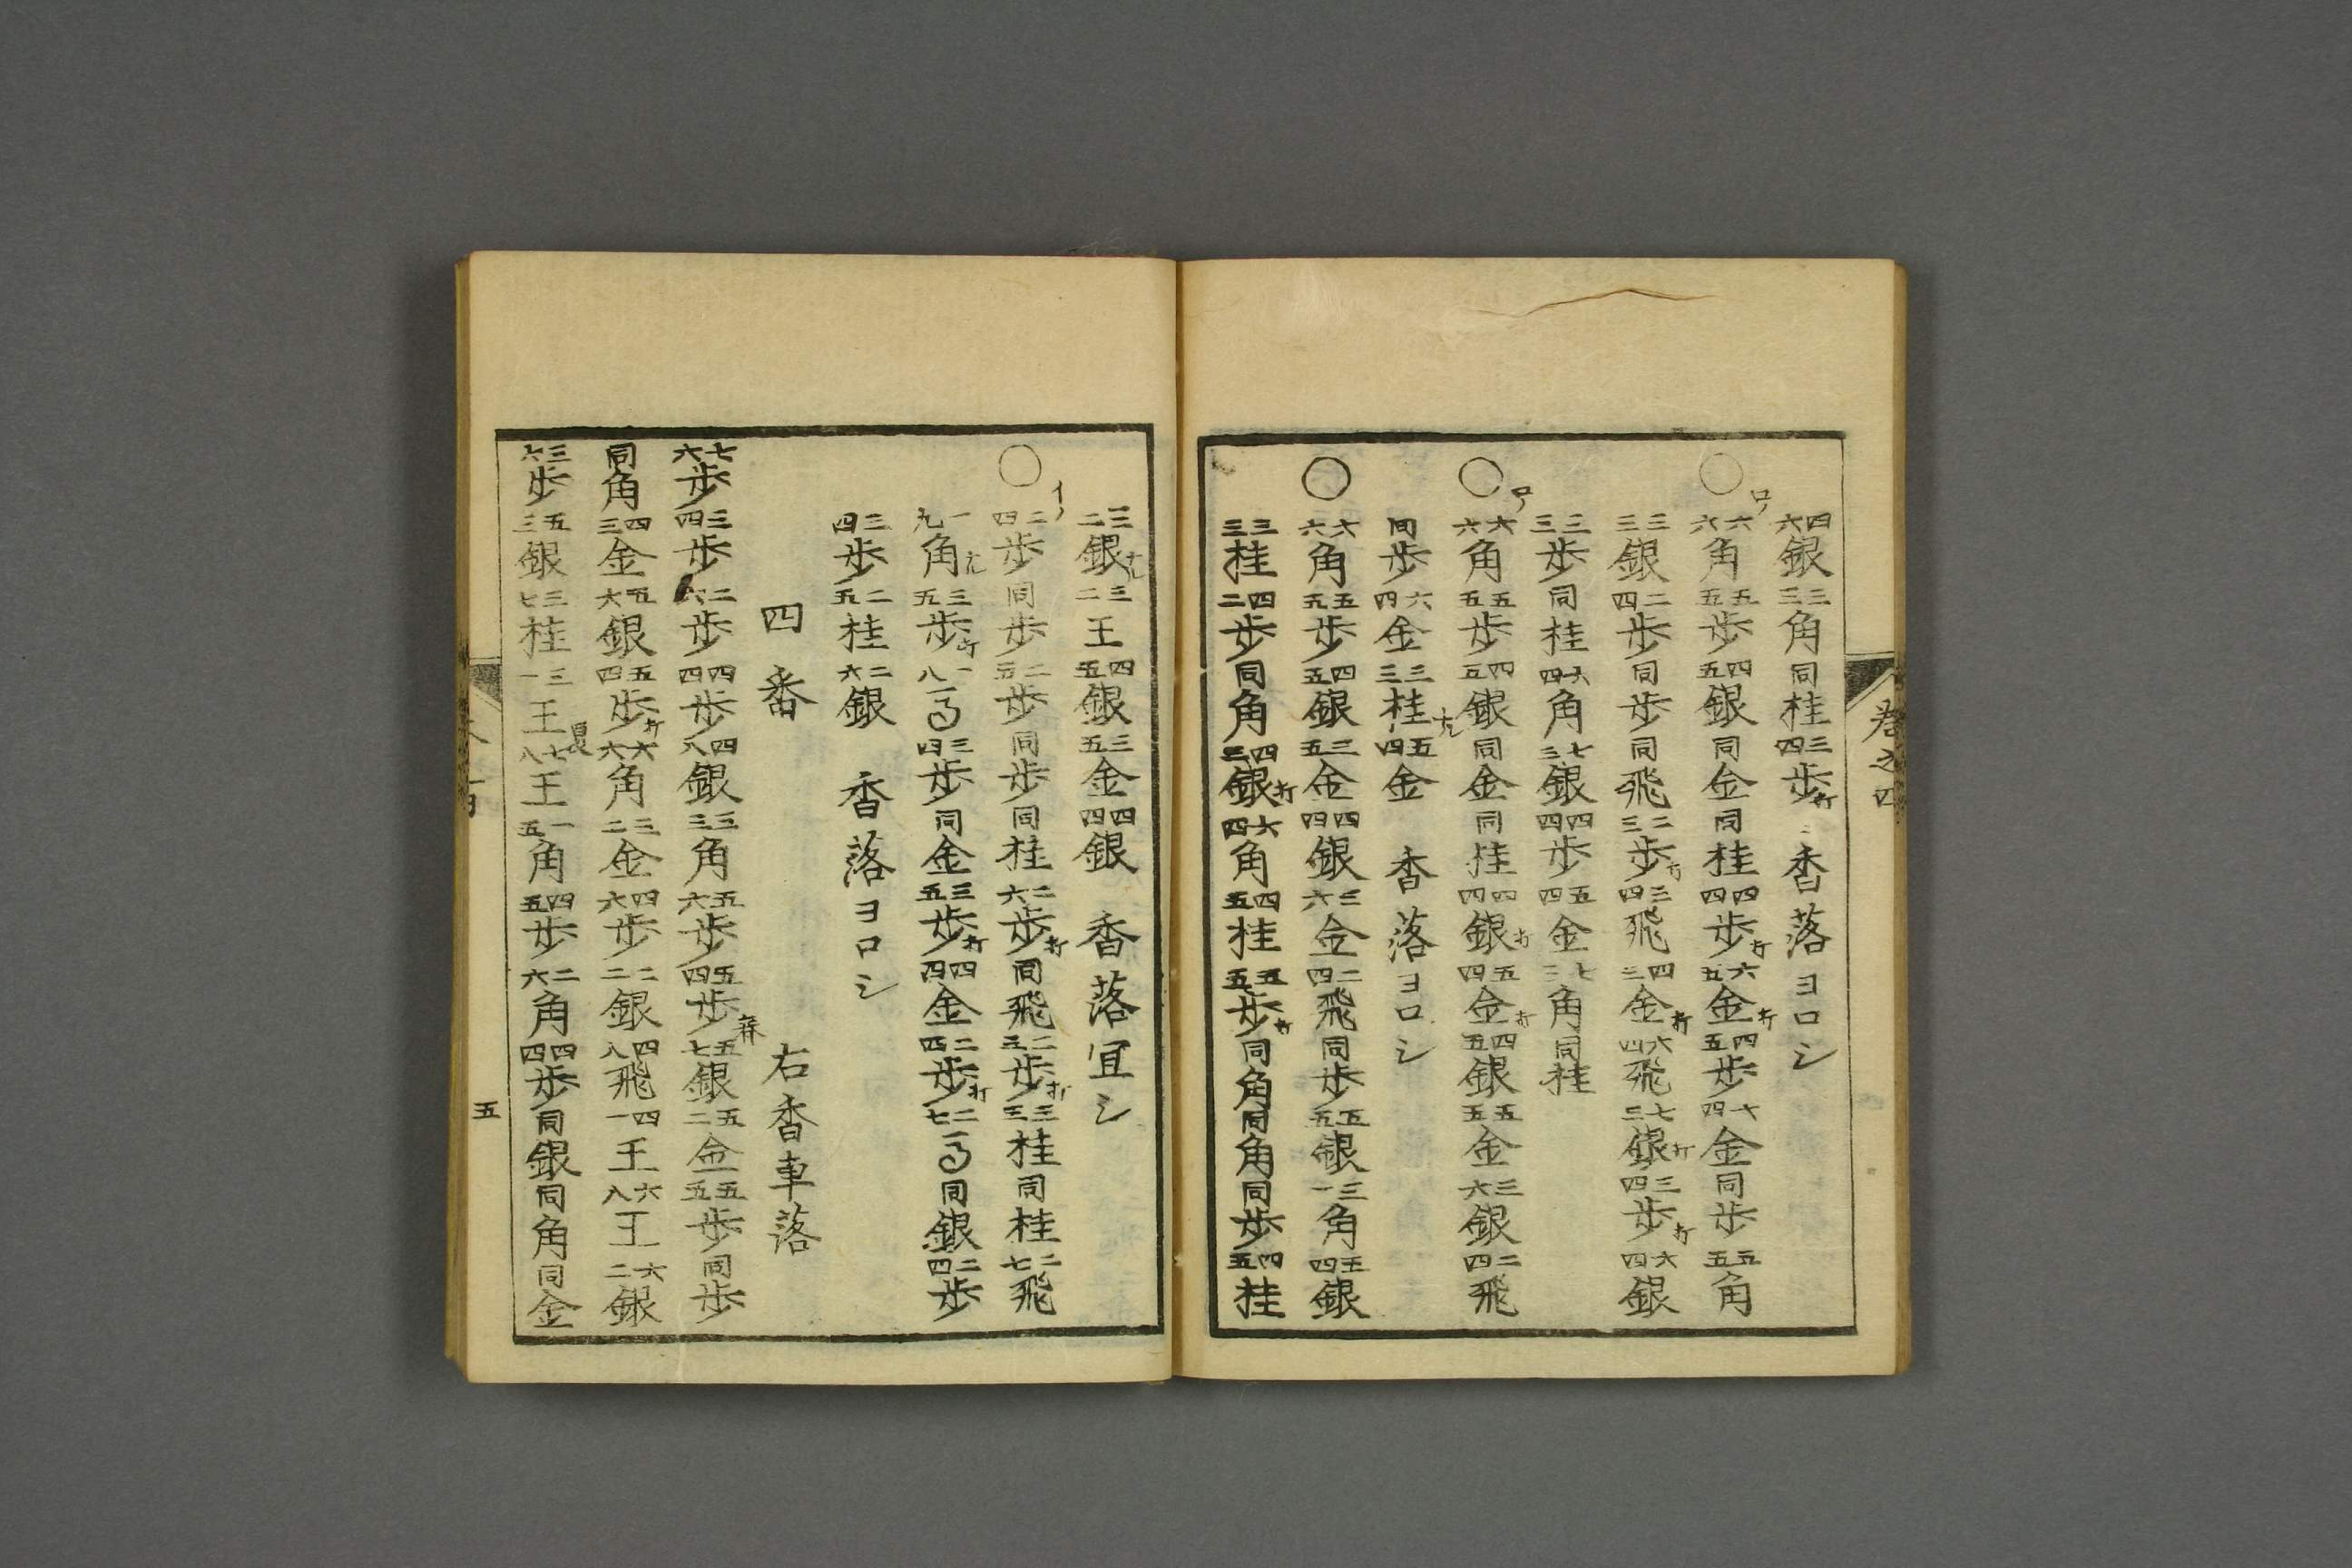 卷之四
四六銀三三角同桂三四歩打香落ヨロシ
〇ロ六六角五五歩四五銀同金同桂四四歩打六五金打四五歩七四金同歩五五角
三三銀二四歩同歩同飛二三歩打三四飛四三金打六四飛七三銀打三四歩打六四銀
三三歩同桂六四角七三銀四四歩五四金七三角同桂
〇ロ六六角五五歩四五銀同金同桂四四銀打五四金打四五銀五五金三六銀二四飛
同歩六四金三三桂ナル五四金香落ヨロシ
〇六六角五五歩四五銀三五金四四銀三六金二四飛同歩五五銀三一角五四銀
三三桂四二歩同角四三銀打六四角四五桂五五歩打同角同角同歩四五桂
三二銀ナル三二王四五銀三五金四四銀香落宜シ
〇イ二四歩同歩二五歩同歩同桂二六歩打同飛二五歩打三三桂同桂二七飛
一九角ナル三五歩打一八馬三四歩同金三五歩打四四金二四歩打二七馬同銀二四歩
三四歩二五桂二六銀香落ヨロシ
四番 右香車落
七六歩三四歩二六歩四四歩四八銀三三角五六歩五四歩五七銀五二金五五歩同歩
同角四三金五六銀五四歩打六六角三二金四六歩二二銀四八飛四一王六八王六二銀
三六歩五三銀三七桂三一王七八王一五角四五歩二六角四四歩同銀同角同金
五